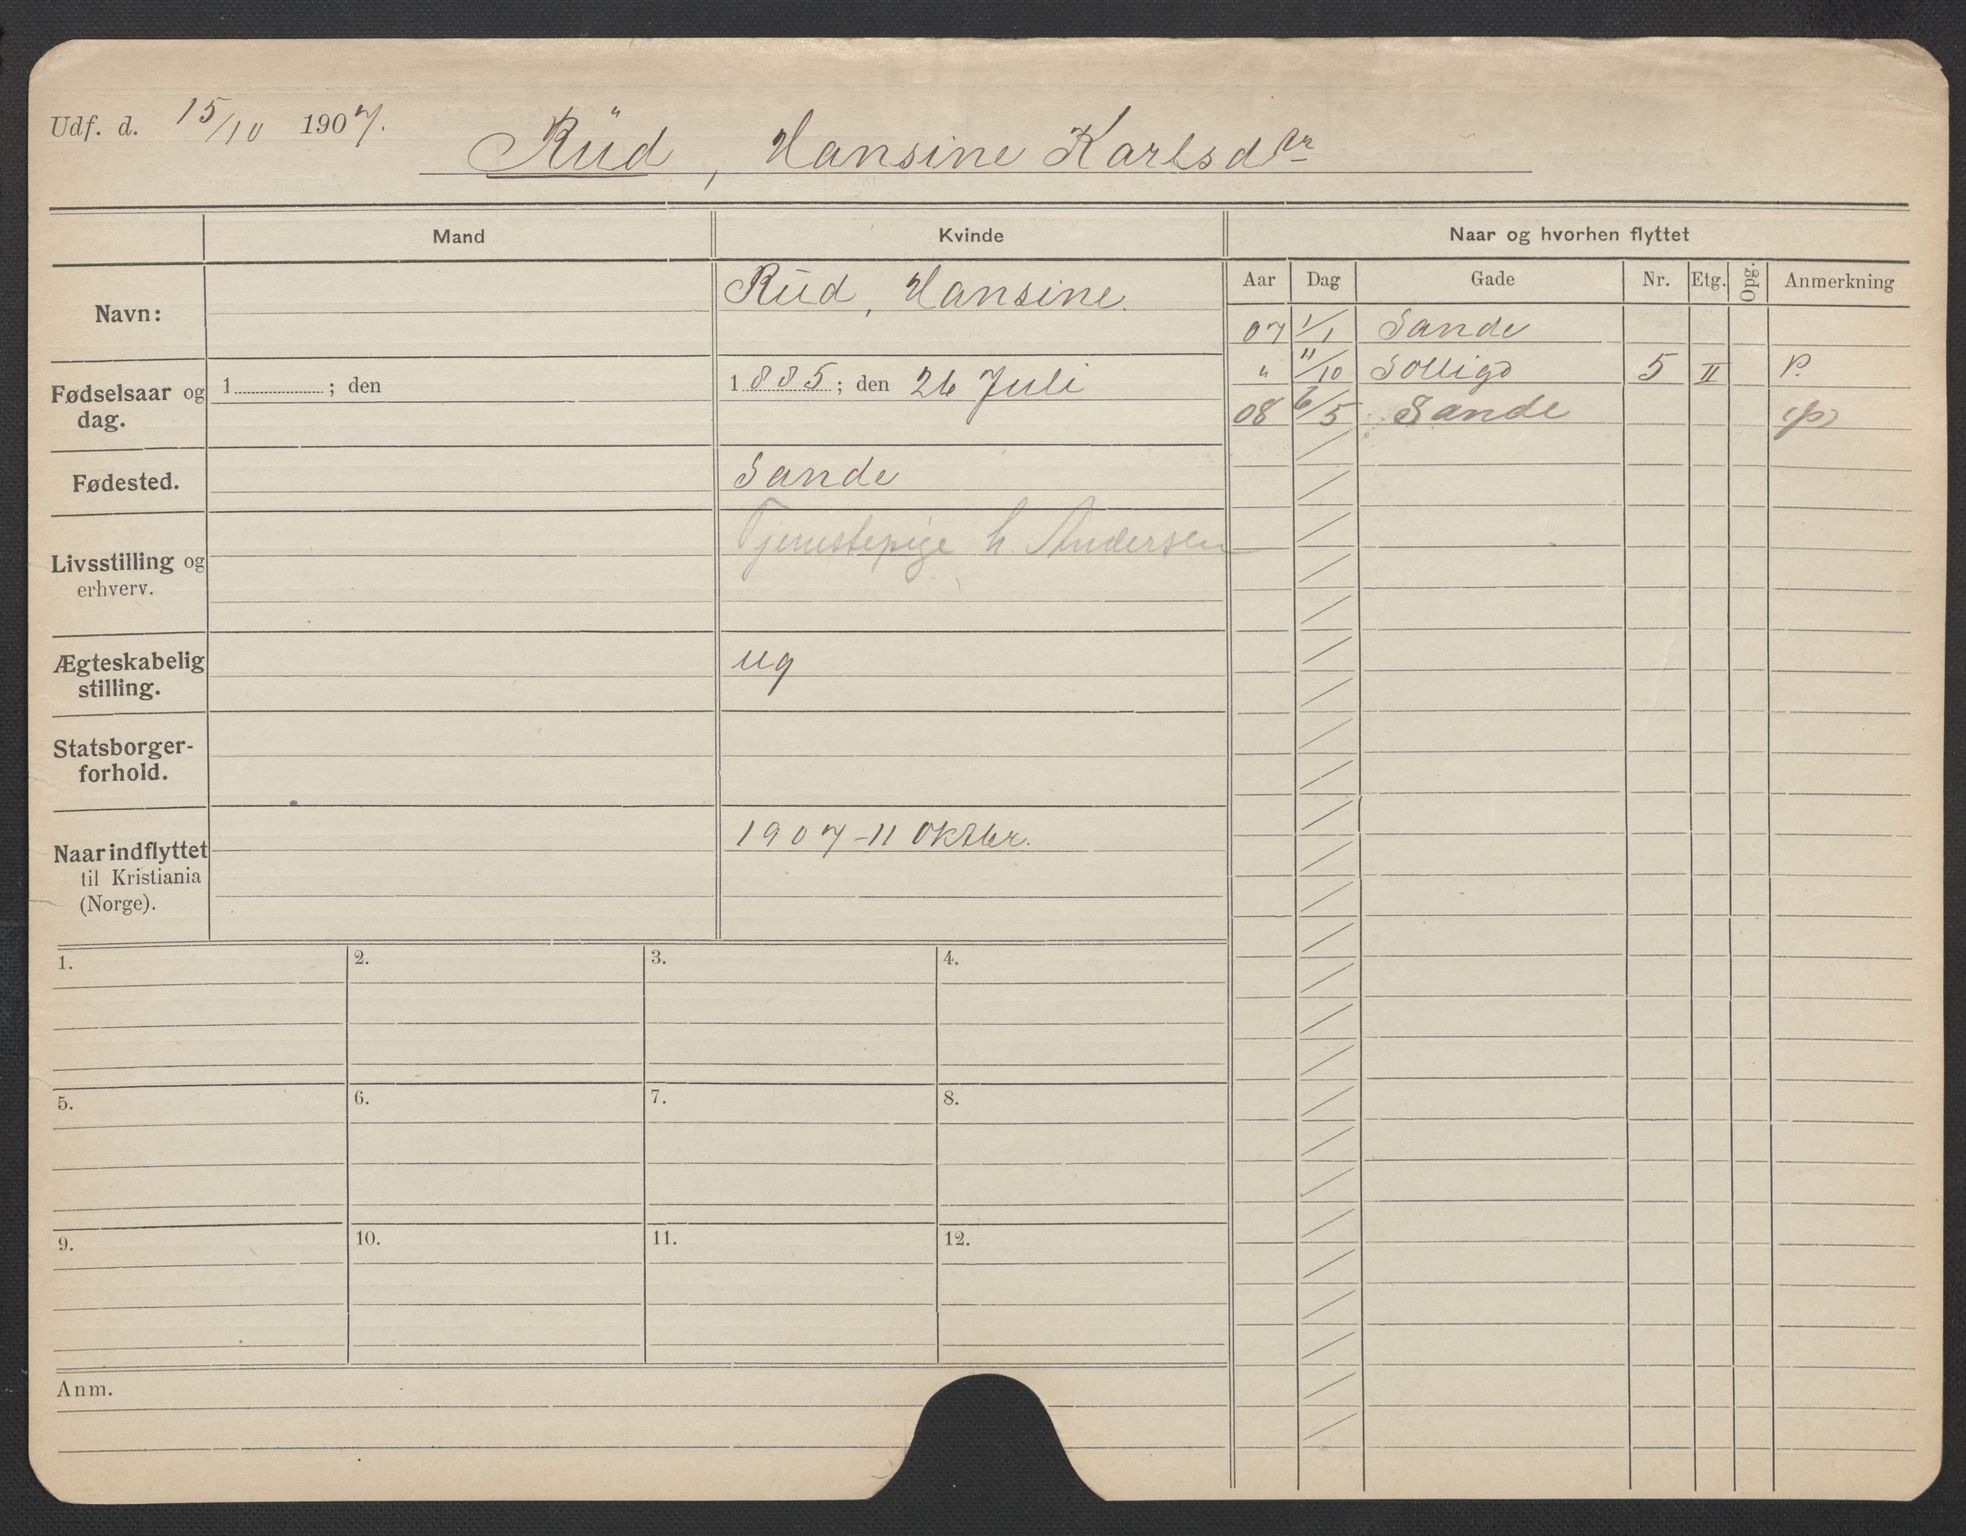 Udf. d. 15/10 1907.
Rüd, Hansine Karlsdtr
Mand Kvinde Naar og hvorhen flyttet
Aar Dag Gade Nr. Etg. Opg. Anmerkning
Navn: Rüd, Hansine.
07 1/1 Sande
" 11/10 Solligd 5 II P.
08 6/5 Sande (p)
Fødselsaar og dag. 1 ; den 1885; den 26 Juli
Fødested. Sande
Livsstilling og erhverv. Tjenestepige h. Andersen
Ægteskabelig stilling. ug
Statsborger-
forhold.
Naar indflyttet 1907-11 Oktbr.
til Kristiania
(Norge).
1. 2. 3. 4.
5. 6. 7. 8.
9. 10. 11. 12.
Anm.